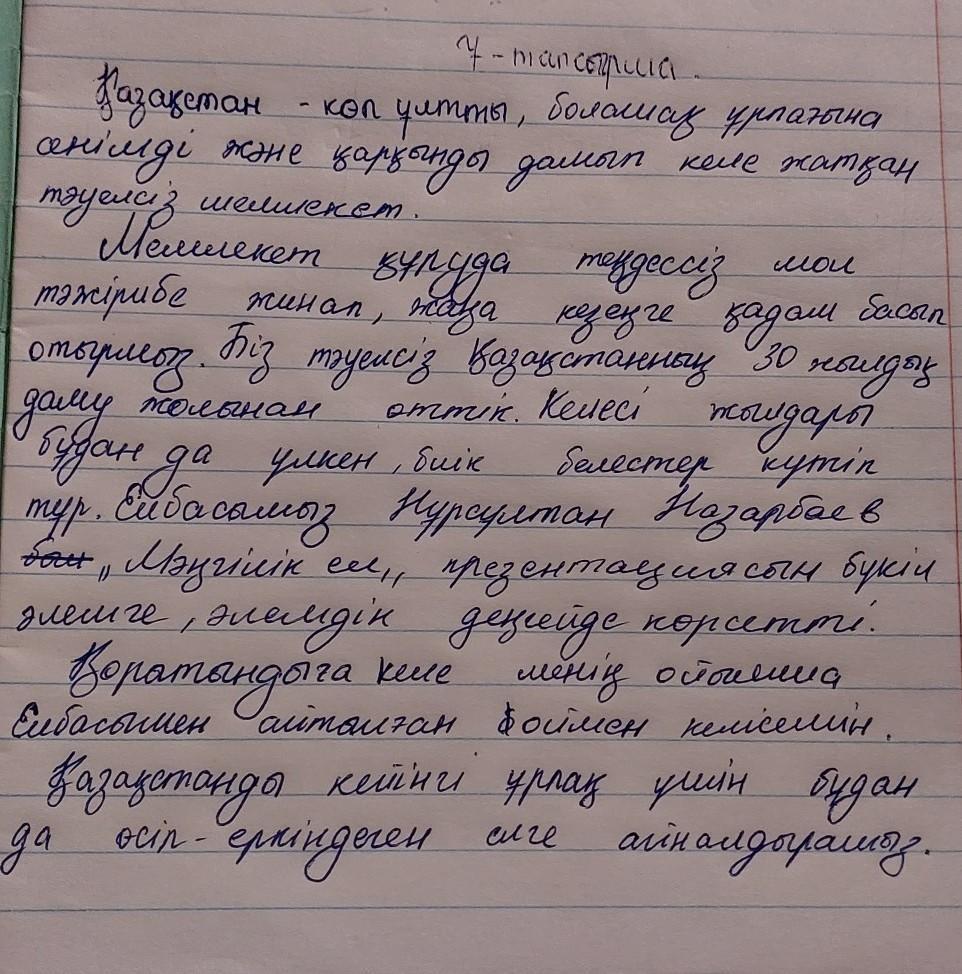 7-тапсырма.
Қазақстан - көп ұлтты, болашақ ұрпағына
сенімді және қарқынды дамып келе жатқан
тәуелсіз мемлекет.
Мемлекет құруда теңдессіз мол
тәжірибе жинап, жаңа кезеңге қадам басып
отырмыз. Біз тәуелсіз Қазақстанның 30 жылдық
даму жолынан өттік. Келесі жылдары
бұдан да үлкен, биік белестер күтіп
тұр. Елбасымыз Нұрсұлтан Назарбаев
„Мәңгілік ел„ презентациясын бүкіл
әлемге, әлемдік деңгейде көрсетті.
Қоратындыға келе менің ойымша
Елбасымен айталған ооймен келісемін.
Қазақстанды кейінгі ұрпақ үшін бұдан
да өсіп-еркіндеген елге айналдырамыз.